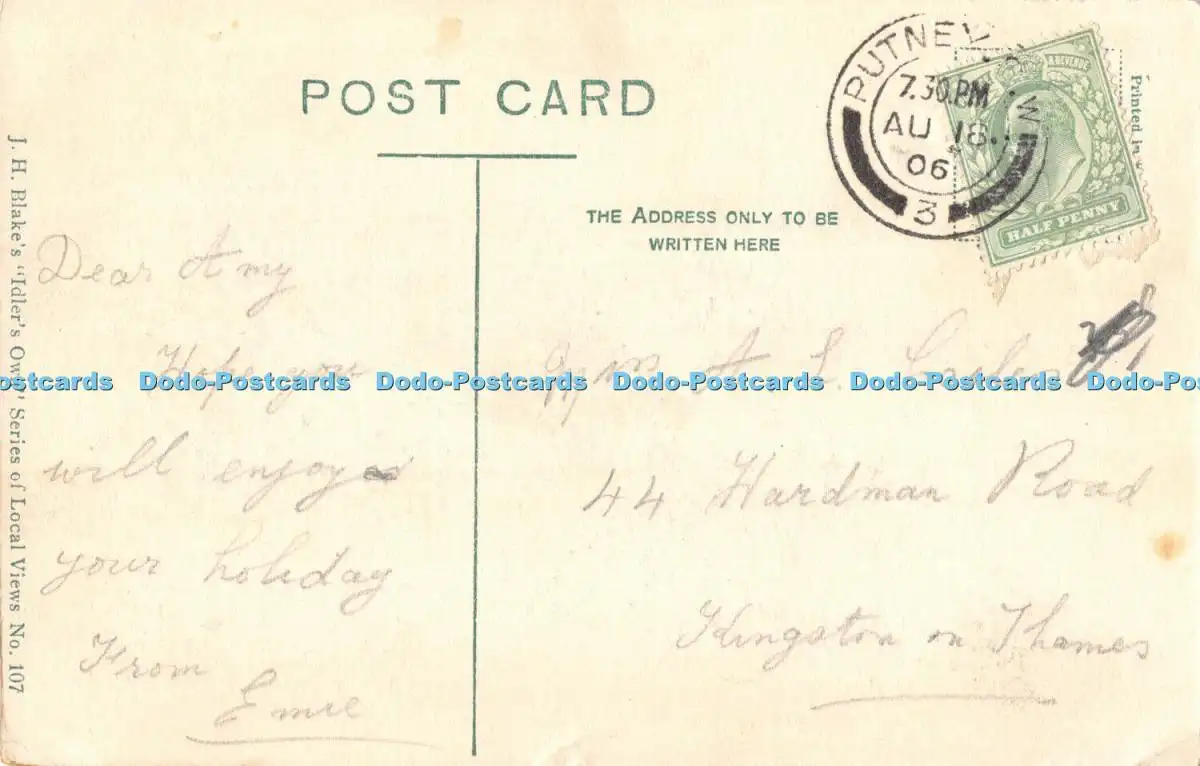 POST CARD
THE ADDRESS ONLY TO BE
WRITTEN HERE
PUTNEY S.W.
7.30.PM
AU 18
06
3
& REVENUE
HALF PENNY
Printed in
J. H. Blake's "Idler's Own" Series of Local Views No. 107
Dear Amy
Hope you
will enjoy
your holiday
From
Emie
A L
44 Hardman Road
Kingston on Thames
Dodo-Postcards Dodo-Postcards Dodo-Postcards Dodo-Postcards